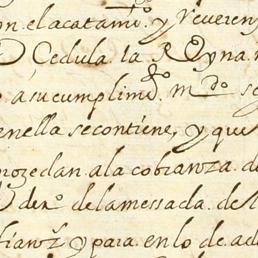 on. el acatamº. y reveren
Cedula. la Rˡ. yna.
a su cumplimº. mdº. se
enella secontiene, y que
prozedan ala cobranza. de
derº. delamessada. de
fianzˢ y para en lo de ade